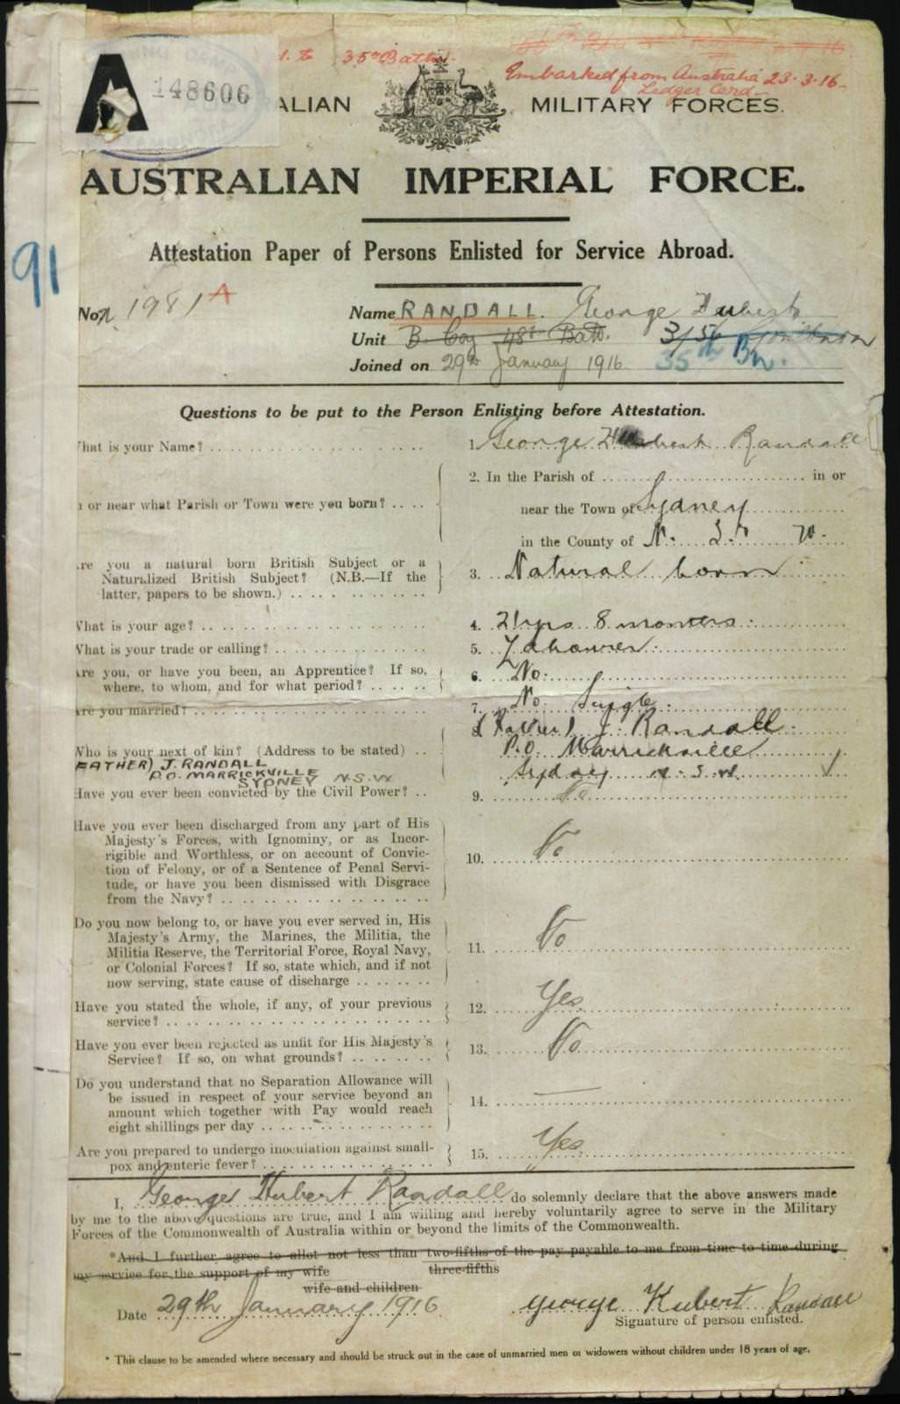 35th Battn.
Embarked from Australia 23.3.16
Ledger Card
A 148606
ALIAN MILITARY FORCES.
AUSTRALIAN IMPERIAL FORCE.
Attestation Paper of Persons Enlisted for Service Abroad.
91
No. 1981 A
Name RANDALL. George Hubert
Unit B Coy 48th Batt.
35th Bn.
Joined on 29th January 1916
Questions to be put to the Person Enlisting before Attestation.
hat is your Name? 1. George Hubert Randall
or near what Parish or Town were you born? 2. In the Parish of in or
near the Town of Sydney
in the County of N. S. W.
re you a natural born British Subject or a
Naturalized British Subject? (N.B.—If the
latter, papers to be shown.) 3. Natural born
What is your age? 4. 21 yrs 8 months
What is your trade or calling? 5. Labourer
Are you, or have you been, an Apprentice? If so,
where, to whom, and for what period? 6. No.
Are you married? 7. No Single
Who is your next of kin? (Address to be stated) (Father) J. Randall
P.O. Marrickville
Sydney N.S.W
FATHER) J. RANDALL
P.O. MARRICKVILLE
SYDNEY N.S.W
Have you ever been convicted by the Civil Power? 9. No
Have you ever been discharged from any part of His
Majesty's Forces, with Ignominy, or as Incor-
rigible and Worthless, or on account of Convic-
tion of Felony, or of a Sentence of Penal Servi-
tude, or have you been dismissed with Disgrace
from the Navy? 10. No
Do you now belong to, or have you ever served in, His
Majesty's Army, the Marines, the Militia, the
Militia Reserve, the Territorial Force, Royal Navy,
or Colonial Forces? If so, state which, and if not
now serving, state cause of discharge 11. No
Have you stated the whole, if any, of your previous
service? 12. Yes
Have you ever been rejected as unfit for His Majesty's
Service? If so, on what grounds? 13. No
Do you understand that no Separation Allowance will
be issued in respect of your service beyond an
amount which together with Pay would reach
eight shillings per day 14. —
Are you prepared to undergo inoculation against small-
pox and enteric fever? 15. Yes
I, George Hubert Randall do solemnly declare that the above answers made
by me to the above questions are true, and I am willing and hereby voluntarily agree to serve in the Military
Forces of the Commonwealth of Australia within or beyond the limits of the Commonwealth.
*And I further agree to allot not less than two-fifths of the pay payable to me from time to time during
three-fifths
my service for the support of my wife
wife and children
Date 29th January 1916
George Hubert Randall
Signature of person enlisted.
* This clause to be amended where necessary and should be struck out in the case of unmarried men or widowers without children under 18 years of age.